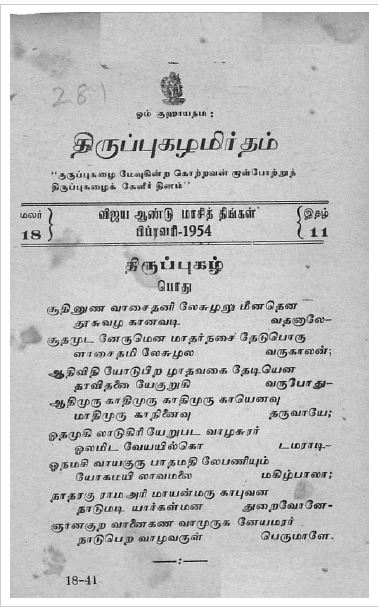 281
ஓம் குஹாயநம :
திருப்புகழமிர்தம்
"குருப்புகழை மேவுகின்ற கொற்றவன் றாள்போற்றுந்
திருப்புகழைக் கேளீர் தினம்"
மலர் 18
விஜய ஆண்டு மாசித் திங்கள்
பிப்ரவரி-1954
இதழ் 11
திருப்புகழ்
பொது
சூதினுண வாசைதனி லேசுழலு மீனதென
தூசுவழ கானவடி வதனாலே-
சூதமுட னேருமென மாதர்நசை தேடுபொரு
ளாசைதமி லேசுழல வருகாலன்;
ஆதிவிதி யோடுபிற ழாதவகை தேடியென
தாவிதனை யேகுறுகி வருபோது-
ஆதிமுரு காதிமுரு காதிமுரு காயெனவு
மாதிமுரு காநினைவு தருவாயே;
ஓதமுகி லாடுகிரி யேறுபட வாழசுரர்
ஓலமிட வேயயில்கொ டமராடி-
ஓநமசி வாயகுரு பாதமதி லேபணியும்
யோகமயி லாவமலை மகிழ்பாலா;
நாதரகு ராமஅரி மாயன்மரு காபுவன
நாடுமடி யார்கள்மன துறைவோனே-
ஞானகுற வானைகண வாமுருக னேயமரர்
நாடுபெற வாழவருள் பெருமாளே.
18-41